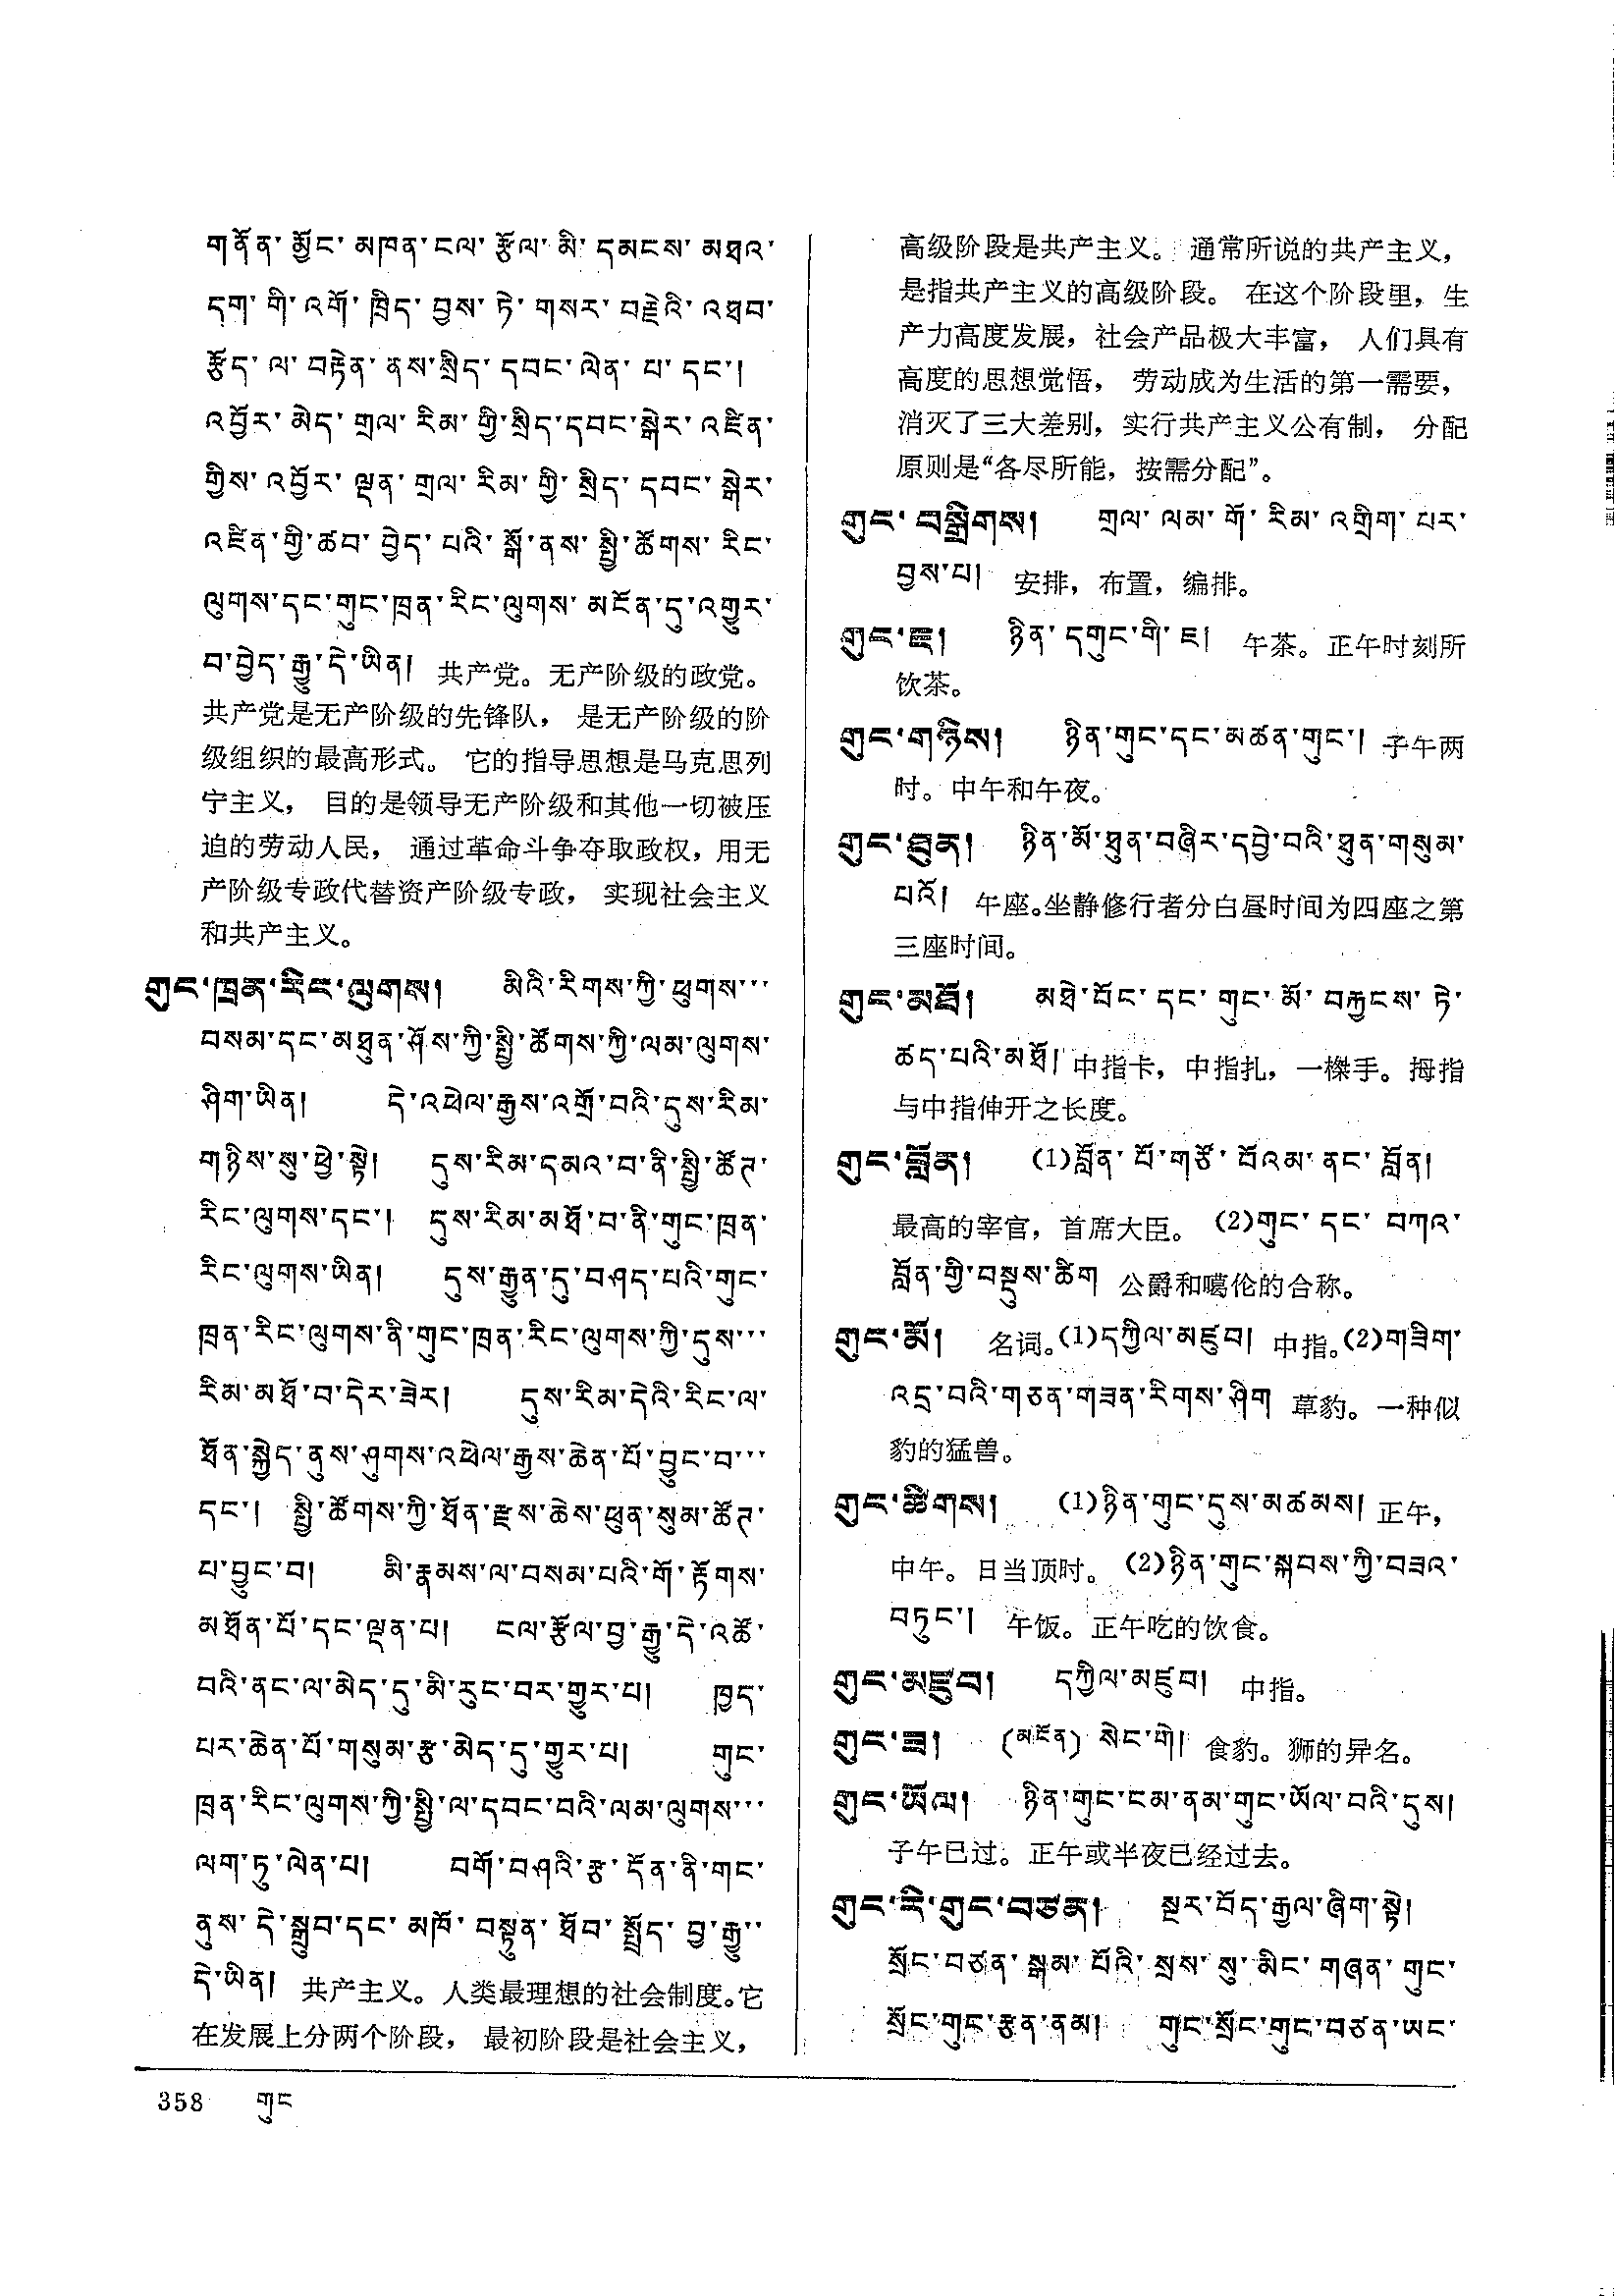 གནོན་མྱོང་མཁན་ངལ་རྩོལ་མི་དམངས་མཐའ་
དག་གི་འགོ་ཁྲིད་བྱས་ཏེ་གསར་བརྗེའི་འཐབ་
རྩོད་ལ་བརྟེན་ནས་སྲིད་དབང་ལེན་པ་དང་།
འབྱོར་མེད་གྲལ་རིམ་གྱི་སྲིད་དབང་སྒེར་འཛིན་
གྱིས་འབྱོར་ལྡན་གྲལ་རིམ་གྱི་སྲིད་དབང་སྒེར་
འཛིན་གྱི་ཚབ་བྱེད་པའི་སྒོ་ནས་སྤྱི་ཚོགས་རིང་
ལུགས་དང་གུང་ཁྲན་རིང་ལུགས་མངོན་དུ་འགྱུར་
བ་བྱེད་རྒྱུ་དེ་ཡིན། 共产党。无产阶级的政党。
共产党是无产阶级的先锋队， 是无产阶级的阶
级组织的最高形式。 它的指导思想是马克思列
宁主义， 目的是领导无产阶级和其他一切被压
迫的劳动人民， 通过革命斗争夺取政权，用无
产阶级专政代替资产阶级专政， 实现社会主义
和共产主义。
གུང་ཁྲན་རིང་ལུགས། མིའི་རིགས་ཀྱི་ཕུགས་་་
བསམ་དང་མཐུན་ཤོས་ཀྱི་སྤྱི་ཚོགས་ཀྱི་ལམ་ལུགས་
ཤིག་ཡིན། དེ་འཕེལ་རྒྱས་འགྲོ་བའི་དུས་རིམ་
གཉིས་སུ་ཕྱེ་སྟེ། དུས་རིམ་དམའ་བ་ནི་སྤྱི་ཚོཊ་
རིང་ལུགས་དང་། དུས་རིམ་མཐོ་བ་ནི་གུང་ཁྲན་
རིང་ལུགས་ཡིན། དུས་རྒྱུན་དུ་བཤད་པའི་གུང་
ཁྲན་རིང་ལུགས་ནི་གུང་ཁྲན་རིང་ལུགས་ཀྱི་དུས་་་
རིམ་མཐོ་བ་དེར་ཟེར། དུས་རིམ་དེའི་རིང་ལ་
ཐོན་སྐྱེད་ནུས་ཤུགས་འཕེལ་རྒྱས་ཆེན་པོ་བྱུང་བ་་་
དང་། སྤྱི་ཚོགས་ཀྱི་ཐོན་རྫས་ཆེས་ཕུན་སུམ་ཚོཊ་
པ་བྱུང་བ། མི་རྣམས་ལ་བསམ་པའི་གོ་རྟོགས་
མཐོན་པོ་དང་ལྡན་པ། ངལ་རྩོལ་བྱ་རྒྱུ་དེ་འཚོ་
བའི་ནང་ལ་མེད་དུ་མི་རུང་བར་གྱུར་པ། ཁྱད་
པར་ཆེན་པོ་གསུམ་རྩ་མེད་དུ་གྱུར་པ། གུང་
ཁྲན་རིང་ལུགས་ཀྱི་སྤྱི་ལ་དབང་བའི་ལམ་ལུགས་་་
ལག་ཏུ་ལེན་པ། བགོ་བཤའི་རྩ་དོན་ནི་གང་
ནུས་དེ་སྒྲུབ་དང་མཁོ་བསྟུན་ཐོབ་སྤྲོད་བྱ་རྒྱུ་་
དེ་ཡིན། 共产主义。人类最理想的社会制度。它
在发展上分两个阶段， 最初阶段是社会主义，
高级阶段是共产主义。 通常所说的共产主义，
是指共产主义的高级阶段。 在这个阶段里，生
产力高度发展，社会产品极大丰富， 人们具有
高度的思想觉悟， 劳动成为生活的第一需要，
消灭了三大差别，实行共产主义公有制， 分配
原则是“各尽所能，按需分配”。
གུང་བསྒྲིགས། གྲལ་ལམ་གོ་རིམ་འགྲིག་པར་
བྱས་པ། 安排，布置，编排。
གུང་ཇ། ཉིན་དགུང་གི་ཇ། 午茶。正午时刻所
饮茶。
གུང་གཉིས། ཉིན་གུང་དང་མཚན་གུང་། 子午两
时。中午和午夜。
གུང་ཐུན། ཉིན་མོ་ཐུན་བཞིར་དབྱེ་བའི་ཐུན་གསུམ་
པའོ། 午座。坐静修行者分白昼时间为四座之第
三座时间。
གུང་མཐོ། མཐེ་བོང་དང་གུང་མོ་བརྐྱངས་ཏེ་
ཚད་པའི་མཐོ། 中指卡，中指扎，一榤手。拇指
与中指伸开之长度。
གུང་བློན། (1)བློན་པོ་གཙོ་བོའམ་ནང་བློན།
最高的宰官，首席大臣。 (2)གུང་དང་བཀའ་
བློན་གྱི་བསྡུས་ཚིག 公爵和噶伦的合称。
གུང་མོ། 名词。(1)དཀྱིལ་མཛུབ། 中指。(2)གཟིག་
འདྲ་བའི་གཅན་གཟན་རིགས་ཤིག 草豹。一种似
豹的猛兽。
གུང་ཚིགས། (1)ཉིན་གུང་དུས་མཚམས། 正午，
中午。日当顶时。 (2)ཉིན་གུང་སྐབས་ཀྱི་བཟའ་
བཏུང་། 午饭。正午吃的饮食。
གུང་མཛུབ། དཀྱིལ་མཛུབ། 中指。
གུང་ཟ། (མངོན) སེང་གེ། 食豹。狮的异名。
གུང་ཡོལ། ཉིན་གུང་ངམ་ནམ་གུང་ཡོལ་བའི་དུས།
子午已过。正午或半夜已经过去。
གུང་རི་གུང་བཙན། སྔར་བོད་རྒྱལ་ཞིག་སྟེ།
སྲོང་བཙན་སྒམ་པོའི་སྲས་སུ་མིང་གཞན་གུང་
སྲོང་གུང་རྩན་ནམ། གུང་སྲོང་གུང་བཙན་ཡང་
358 གུང